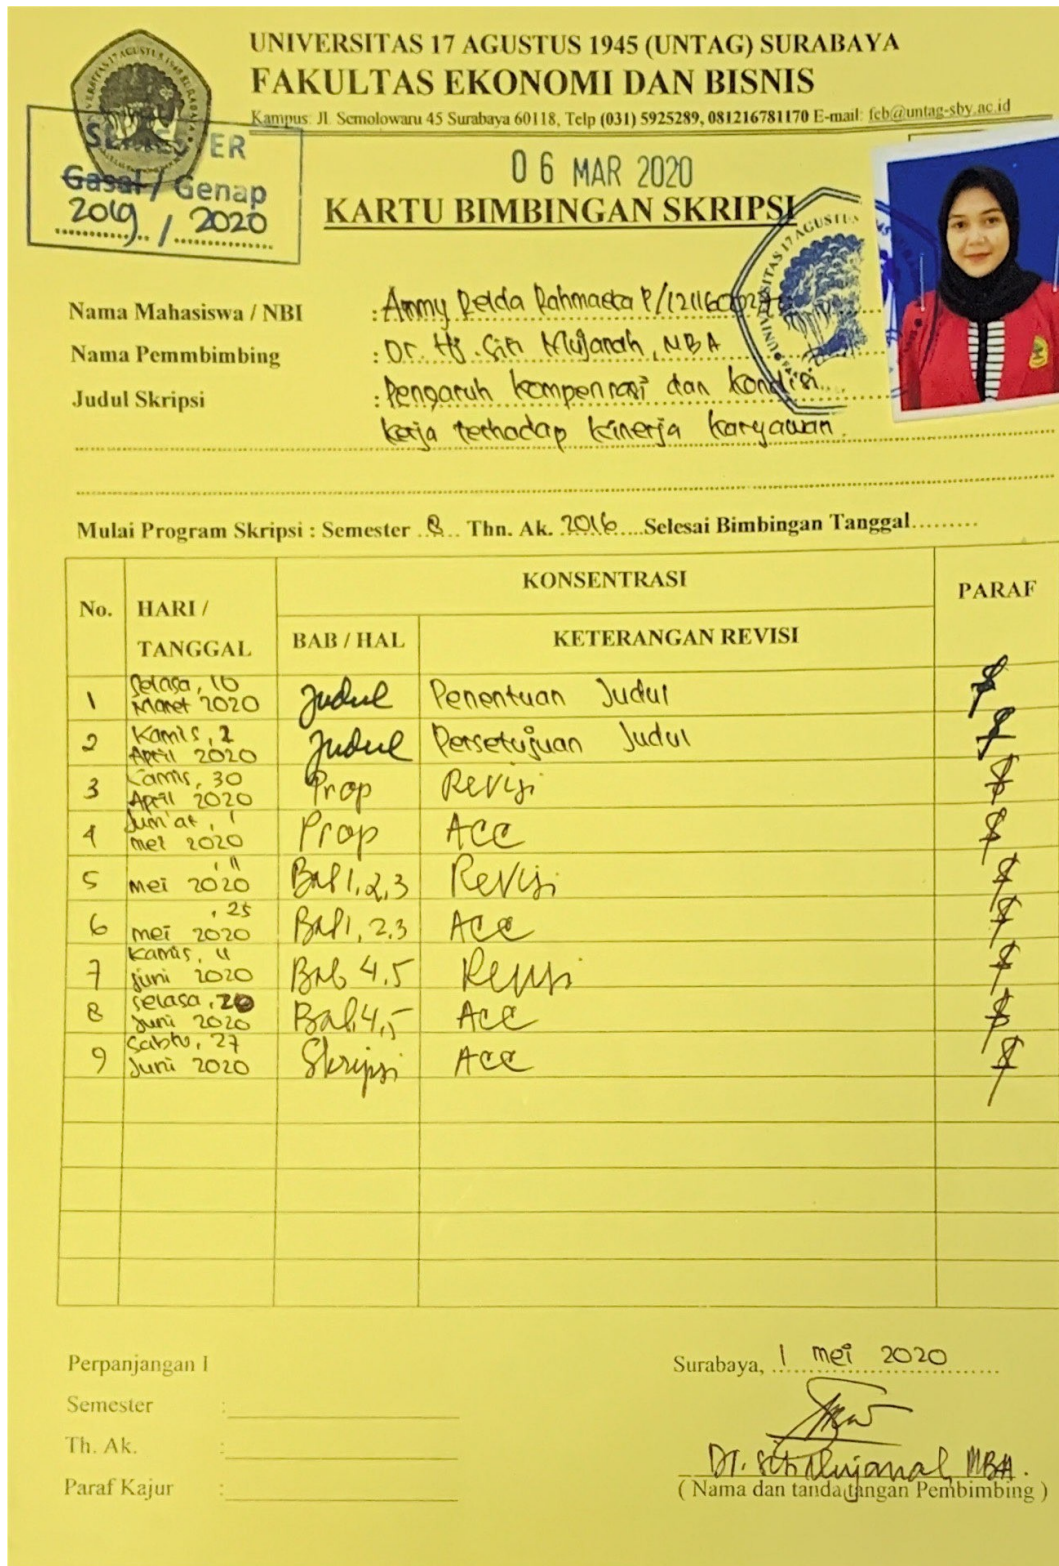 UNIVERSITAS 17 AGUSTUS 1945 (UNTAG) SURABAYA
FAKULTAS EKONOMI DAN BISNIS
Kampus: Jl. Semolowaru 45 Surabaya 60118, Telp (031) 5925289, 081216781170 E-mail: feb@untag-sby.ac.id
SEMESTER
Gasal / Genap
2019 / 2020
06 MAR 2020
KARTU BIMBINGAN SKRIPSI
Nama Mahasiswa / NBI : Ammy Relda Rahmaeta P/
Nama Pemmbimbing : Dr. Hj. Siti Mujanah, MBA
Judul Skripsi : Pengaruh kompensasi dan kondisi
kerja terhadap kinerja karyawan.
Mulai Program Skripsi : Semester ..8.. Thn. Ak. 2016....Selesai Bimbingan Tanggal.........
No. HARI / TANGGAL KONSENTRASI PARAF
BAB / HAL KETERANGAN REVISI
1 Selasa, 10 Maret 2020 Judul Penentuan Judul
2 Kamis, 2 April 2020 Judul Persetujuan Judul
3 Kamis, 30 April 2020 Prop Revisi
4 Jum'at, 1 mei 2020 Prop Acc
5 , 11 mei 2020 Bab 1,2,3 Revisi
6 , 25 mei 2020 Bab 1,2,3 Acc
7 Kamis, 4 juni 2020 Bab 4,5 Revisi
8 Selasa, Juni 2020 Bab 4,5 Acc
9 Sabtu, 27 Juni 2020 Skripsi Acc
Perpanjangan I
Semester :
Th. Ak. :
Paraf Kajur :
Surabaya, 1 mei 2020
Dr. Siti Mujanah, MBA.
( Nama dan tanda tangan Pembimbing )